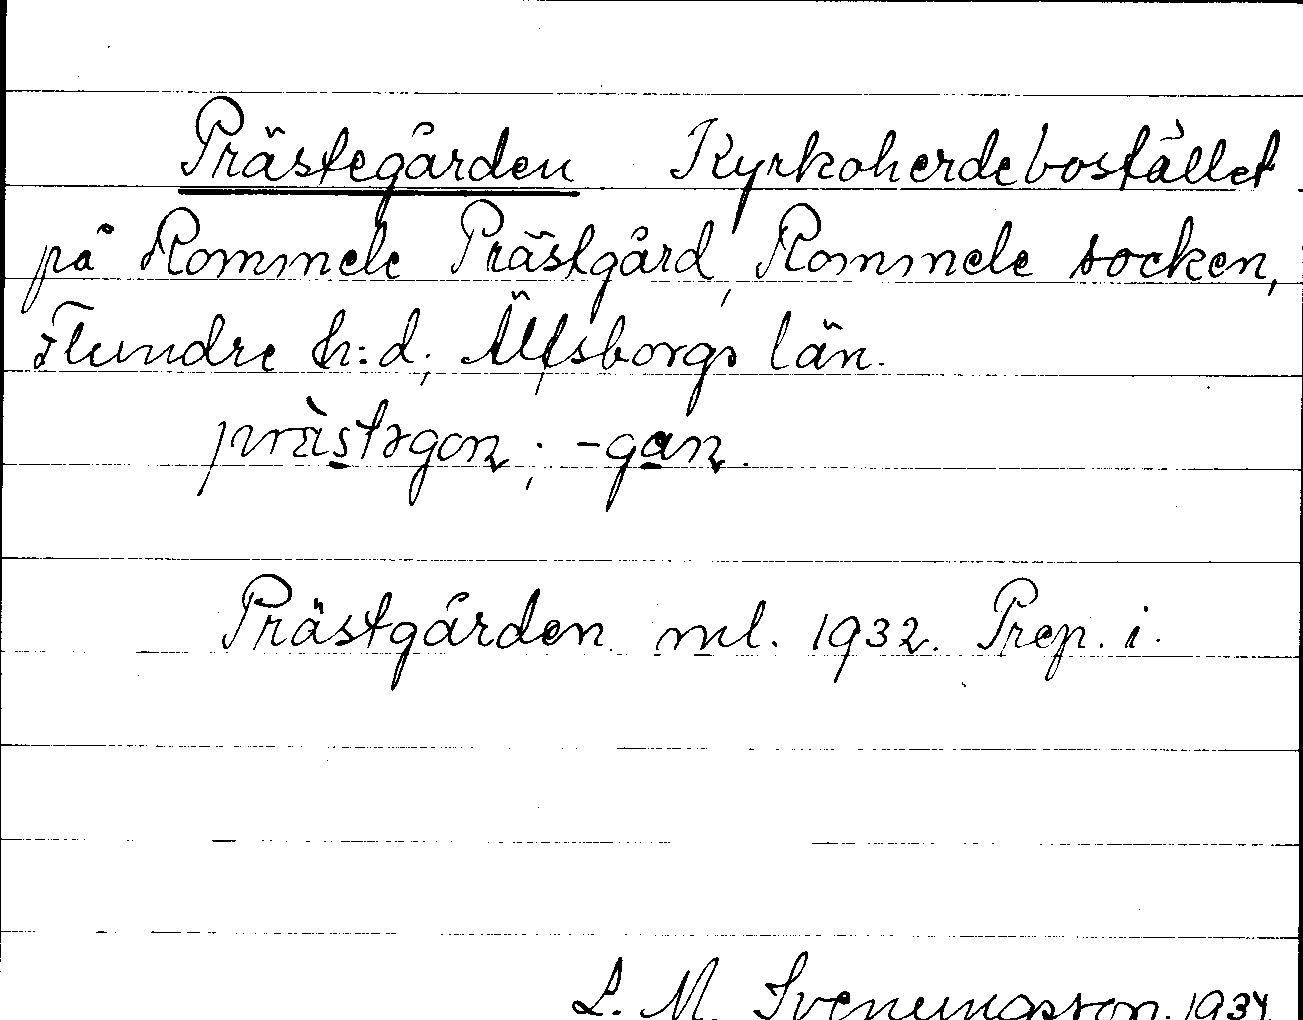 Prästegården Kyrkoherdebostället
på Rommele Prästgård, Rommele socken,
Flundre h:d, Älfsborgs län.
präs̱təgon, ; -ga̱n.
Prästgården ml. 1932. Prep. i.
L. M. Svenungsson. 1934.